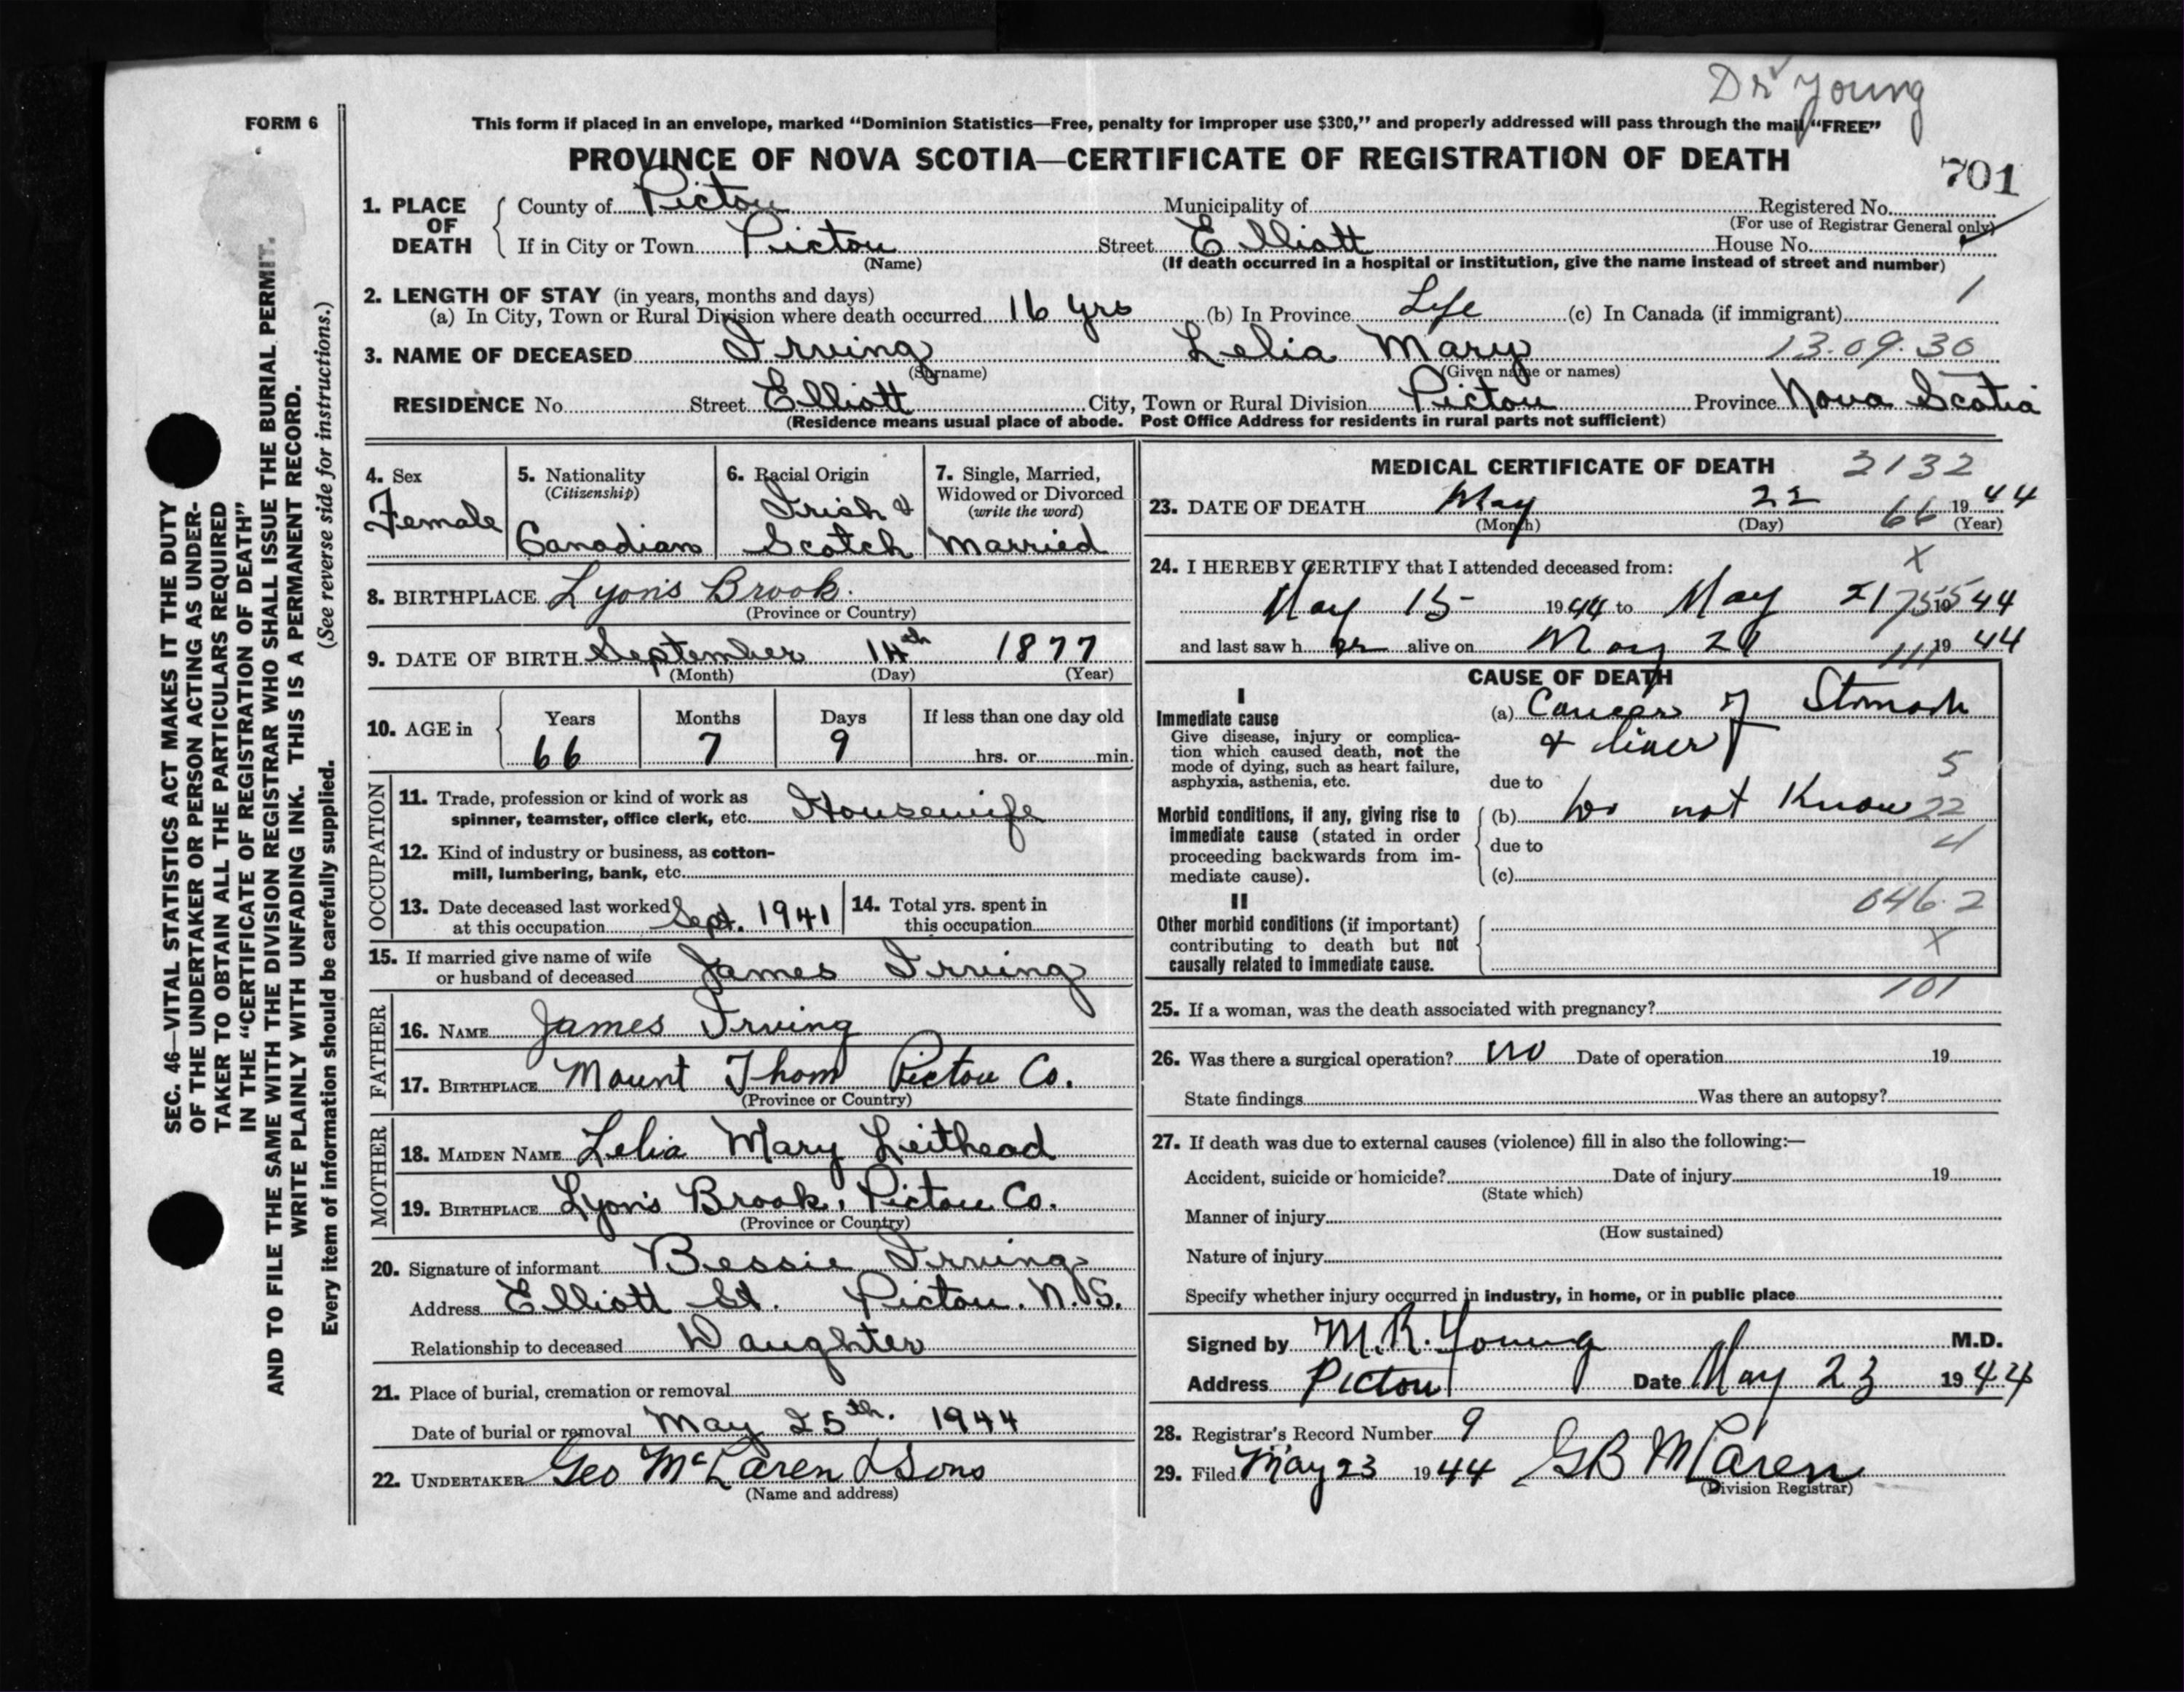 Dr Young
FORM 6
This form if placed in an envelope, marked "Dominion Statistics—Free, penalty for improper use $300," and properly addressed will pass through the mail "FREE"
PROVINCE OF NOVA SCOTIA—CERTIFICATE OF REGISTRATION OF DEATH
701
1. PLACE OF DEATH
County of Pictou Municipality of Registered No.
(For use of Registrar General only)
If in City or Town Pictou Street Elliott House No.
(Name) (If death occurred in a hospital or institution, give the name instead of street and number)
2. LENGTH OF STAY (in years, months and days) 1
(a) In City, Town or Rural Division where death occurred 16 yrs (b) In Province Life (c) In Canada (if immigrant)
3. NAME OF DECEASED Irving Lelia Mary 13.09.30
(Surname) (Given name or names)
RESIDENCE No. Street Elliott City, Town or Rural Division Pictou Province Nova Scotia
(Residence means usual place of abode. Post Office Address for residents in rural parts not sufficient)
4. Sex
Female
5. Nationality
(Citizenship)
Canadian
6. Racial Origin
Irish &
Scotch
7. Single, Married,
Widowed or Divorced
(write the word)
Married
8. BIRTHPLACE Lyon's Brook.
(Province or Country)
9. DATE OF BIRTH September 14th 1877
(Month) (Day) (Year)
10. AGE in Years Months Days If less than one day old
66 7 9 hrs. or min.
OCCUPATION
11. Trade, profession or kind of work as
spinner, teamster, office clerk, etc. Housewife
12. Kind of industry or business, as cotton-
mill, lumbering, bank, etc.
13. Date deceased last worked
at this occupation Sept. 1941
14. Total yrs. spent in
this occupation
15. If married give name of wife
or husband of deceased James Irving
FATHER
16. NAME James Irving
17. BIRTHPLACE Mount Thom Pictou Co.
(Province or Country)
MOTHER
18. MAIDEN NAME Lelia Mary Leithead
19. BIRTHPLACE Lyon's Brook, Pictou Co.
(Province or Country)
20. Signature of informant Bessie Irving
Address Elliott St. Pictou. N.S.
Relationship to deceased Daughter
21. Place of burial, cremation or removal
Date of burial or removal May 25th. 1944
22. UNDERTAKER Geo McLaren & Sons
(Name and address)
MEDICAL CERTIFICATE OF DEATH 2132
23. DATE OF DEATH May 22 66 1944
(Month) (Day) (Year)
24. I HEREBY CERTIFY that I attended deceased from: X
May 15 1944 to May 21 1944
and last saw her alive on May 21 1944
CAUSE OF DEATH
I
Immediate cause
Give disease, injury or complica-
tion which caused death, not the
mode of dying, such as heart failure,
asphyxia, asthenia, etc.
(a) Cancer of Stomach
& liver
5
due to
Morbid conditions, if any, giving rise to
immediate cause (stated in order
proceeding backwards from im-
mediate cause).
(b) Do not Know 22
due to 4
(c)
046.2
II
Other morbid conditions (if important)
contributing to death but not
causally related to immediate cause.
X
101
25. If a woman, was the death associated with pregnancy?
26. Was there a surgical operation? no Date of operation 19
State findings Was there an autopsy?
27. If death was due to external causes (violence) fill in also the following:—
Accident, suicide or homicide? Date of injury 19
(State which)
Manner of injury
(How sustained)
Nature of injury
Specify whether injury occurred in industry, in home, or in public place
Signed by M.R. Young M.D.
Address Pictou Date May 23 1944
28. Registrar's Record Number 9
29. Filed May 23 1944 GB McLaren
(Division Registrar)
SEC. 46—VITAL STATISTICS ACT MAKES IT THE DUTY
OF THE UNDERTAKER OR PERSON ACTING AS UNDER-
TAKER TO OBTAIN ALL THE PARTICULARS REQUIRED
IN THE "CERTIFICATE OF REGISTRATION OF DEATH"
AND TO FILE THE SAME WITH THE DIVISION REGISTRAR WHO SHALL ISSUE THE BURIAL PERMIT.
WRITE PLAINLY WITH UNFADING INK. THIS IS A PERMANENT RECORD.
Every item of information should be carefully supplied. (See reverse side for instructions.)